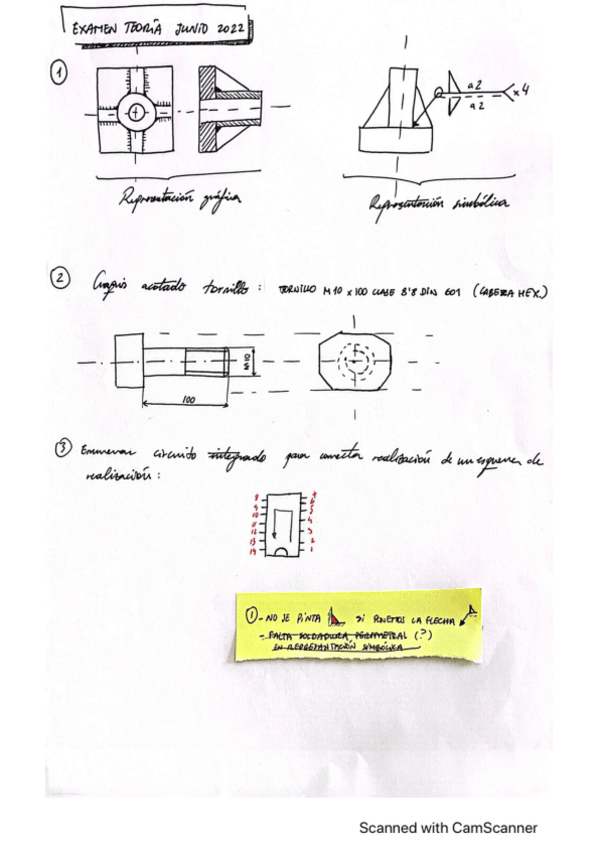 EXAMEN TEORÍA JUNIO 2022
1
a2
a2
x4
Representación gráfica
Representación simbólica
2 Croquis acotado tornillo: TORNILLO M10 x 100 CLASE 8'8 DIN 601 (CABEZA HEX.)
M10
100
3 Enumerar circuito integrado para correcta realización de un esquema de
realización:
8 7
9 6
10 5
11 4
12 3
13 2
14 1
1 - NO SE PINTA SI PONEMOS LA FLECHA
- FALTA SOLDADURA PERIMETRAL (?)
EN REPRESENTACIÓN SIMBÓLICA
Scanned with CamScanner